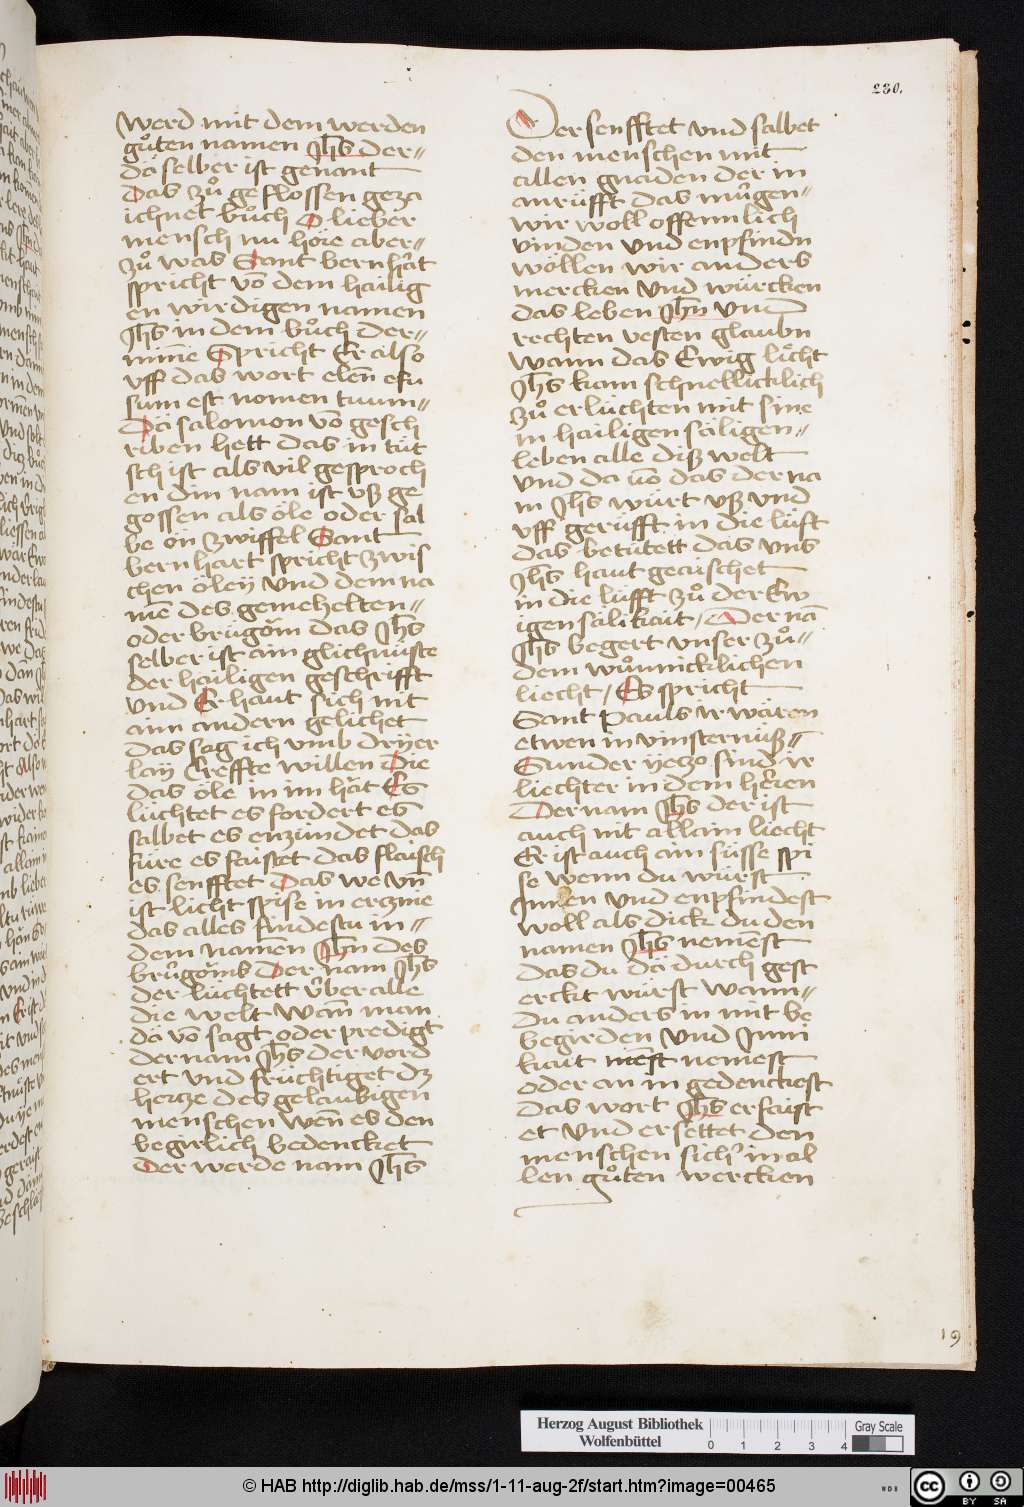 230.
werd mit dem werden
guͦten namen Jh̄s der=
dä selber ist genant
Das zuͦ geflossen geza
ichnet buͦch O lieber
mensch nu höre aber=
zuͦ was Sant bernhart
spricht vō dem hailig
en wirdigen namen
Jh̄s in dem buͦch der=
mine Spricht Er also
vff das wort elen̄ efu
sum est nomen tuum=
Dä salomon vō gesch
riben hett das in tüt
sch ist als vil gesproch
en din nam ist vß ge
gossen als öle oder sal
be on zwiffel Sant
bernhart spricht zwis
chen öleÿ vnd dem na
men des gemehelten=
oder brügom̄ das Jh̄s
selber ist ain glichnüste
der hailigen geschrifft
vnd Er haut sich nit
ain andern gelichet
das sag ich vmb drÿer
laÿ Creffte willen Die
das öle in im hät Es
lüchtet es fordert es
salbet es enzündet das
füre es faistet das flaisch
es senfftet Das we vn̄
ist licht spise in ercznie
das alles findestu in=
dem namen Jh̄u des
brügom̄s Der nam Jh̄s
der lüchtett v̈ber alle
die welt Wann man
dä vō sagt oder predigt
der nam Jh̄s der vord
ert vnd früchtiget dz
hercze des gelaubigen
menschen wen̄ es den
begirlich bedencket
Der werde nam Jh̄s
Der senfftet vnd salbet
den menschen mit
allen gnaden der in
anrüfft das mügen=
wir woll offennlich
vinden vnd enpfindn
wöllen wir anders
mercken vnd würcken
das leben Jh̄u vnd
rechten vesten glaubn
Wann das Ewig lὅcht
Jh̄s kam schnellicklich
zuͦ erlüchten mit sine
m hailigen säligen=
leben alle diß welt
vnd da vō das der na
m Jh̄s würt vß vnd
vff gerüfft in die lüft
das betütett das vns
Jh̄s haut geaischet
in die lüfft zuͦ der Ew
igen sälikait / Der nā
Jh̄s begert vnser zuͦ=
dem wuͦnnicklichen
liecht / Es spricht
Sant Pauls ir wären
etwen in vinsternüß=
Sunder yeczo sind ir
liechter in dem heren
Der nam Jh̄s der ist
auch nit allain liecht
Er ist auch ain süsse spi
se wenn du würst
Innen vnd enpfindest
woll als dick du den
namen Jh̄s nemest
das du dä durch gest
erckt würst Wann=
du anders in mit be
begirden vnd Inni
kait nenst nemest
oder an in gedenckest
das wort Jh̄s erfaist
et vnd ersettet den
menschen sich in al
len guͦten wercken
19
Herzog August Bibliothek
Wolfenbüttel
0 1 2 3 4
Gray Scale
© HAB http://diglib.hab.de/mss/1-11-aug-2f/start.htm?image=00465
WDB
cc BY SA